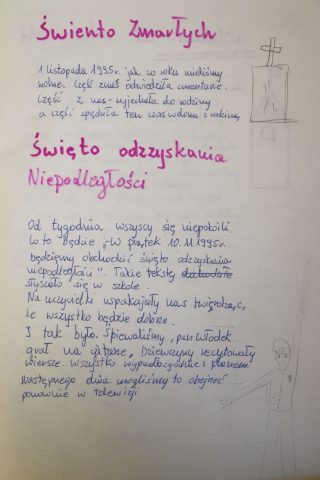 Świento Zmarłych
1 listopada 1995r. jak co roku mieliśmy
wolne. Część znas odwiedziła cmentarze
Część z nas-wyjechała do rodziny
a część spędzała ten czas wdomu z rodziną
Święto odzzyskania
Niepodległości
Od tygodnia wszyscy się niepokoili
co to będzie „W piątek 10.11.1995r.
będziemy obchodzić święto odzyskania
niepodległości". Takie teksty obchodziło
słyszało się w szkole.
Na uczycielki uspakajały nas twierdząc,
że wszystko będzie dobrze.
I tak było. Śpiewaliśmy, pan Włodek
grał na gitarze, Dziewczyny recytowały
wiersze. Wszystko wypadło zgodnie z planem
Następnego dnia mogliśmy to obejrzeć
ponownie w telewizji